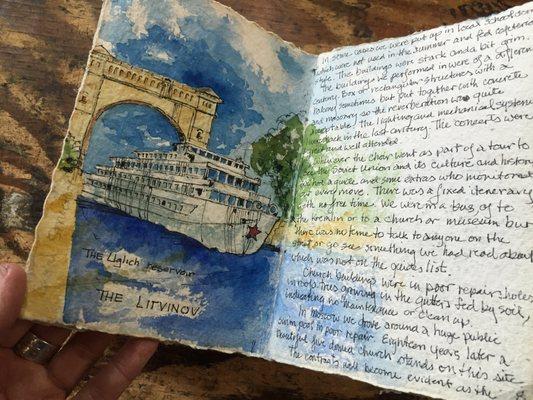 THE Uglich reservoir
THE LITVINOV
In some cases we were put up in local schools
which were not used in the summer and fed cafeteria
style. This buildings were stark and a bit grim.
The buildings we performed in were of a different
century. Box or rectangular structures with a
balcony sometimes but put together with concrete
and masonry so the reverberation was quite
The lighting and mechanical systems
back in the last century. The concerts were
and well attended.
the choir went as part of a tour to
the Soviet Union and its culture and history
a guide and some extras who monitored
every move. There was a fixed itenerary
with no free time. We were in a bus, go to
the Kremlin or to a church or museum but
there was no time to talk to anyone on the
street or go see something we had read about
which was not on the guides list.
Church buildings were in poor repair, holes
in roofs, trees growing in the gutters fed by soil,
indicating no maintenance or clean up.
In Moscow we drove around a huge public
swim pool in poor repair. Eighteen years later a
beautiful five domed church stands on this site
The contrasts will become evident as the